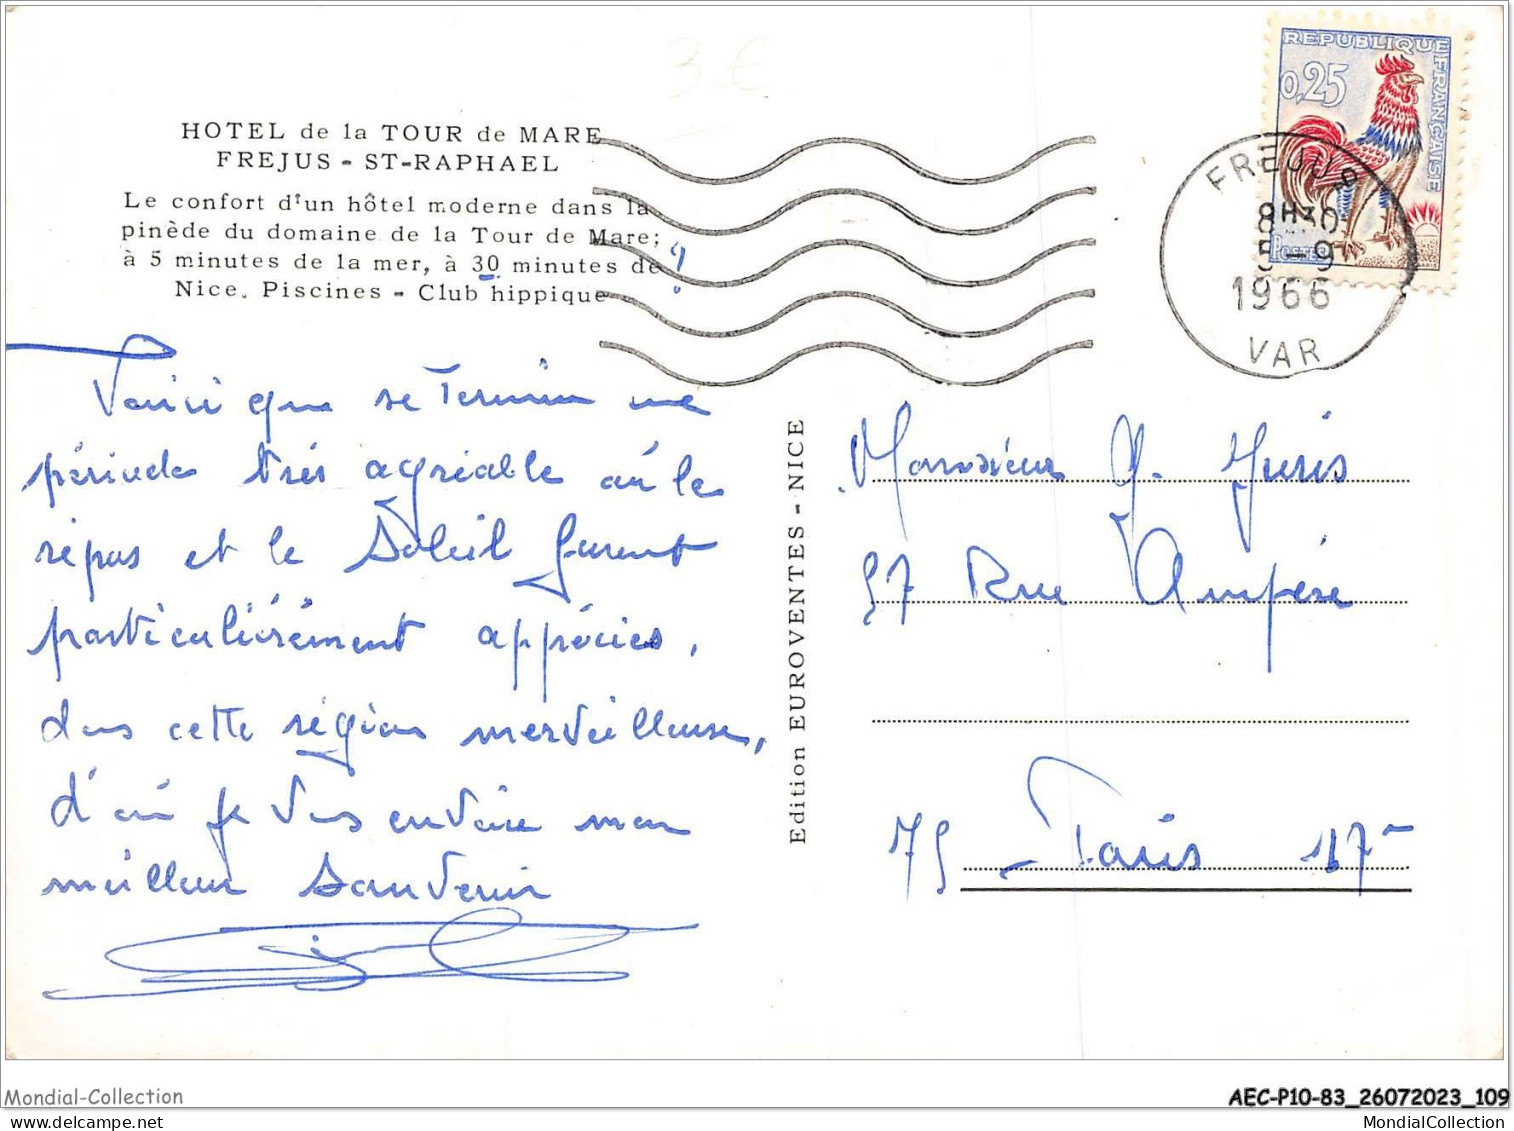 3€
REPUBLIQUE FRANÇAISE
0,25
POSTES
HOTEL de la TOUR de MARE
FREJUS - ST-RAPHAEL
Le confort d'un hôtel moderne dans la
pinède du domaine de la Tour de Mare;
à 5 minutes de la mer, à 30 minutes de ?
Nice. Piscines - Club hippique
FREJUS
8H30
5-9
1966
VAR
Voici que se termine une
période très agréable où le
repas et le Soleil furent
particulièrement appréciés,
dans cette région merveilleuse,
d'où je vous envoie mon
meilleur Souvenir
Edition EUROVENTES - NICE
Monsieur G. Juris
57 Rue Ampère
75 - Paris 17e
Mondial-Collection
delcampe.net
AEC-P10-83_26072023_109
MondialCollection